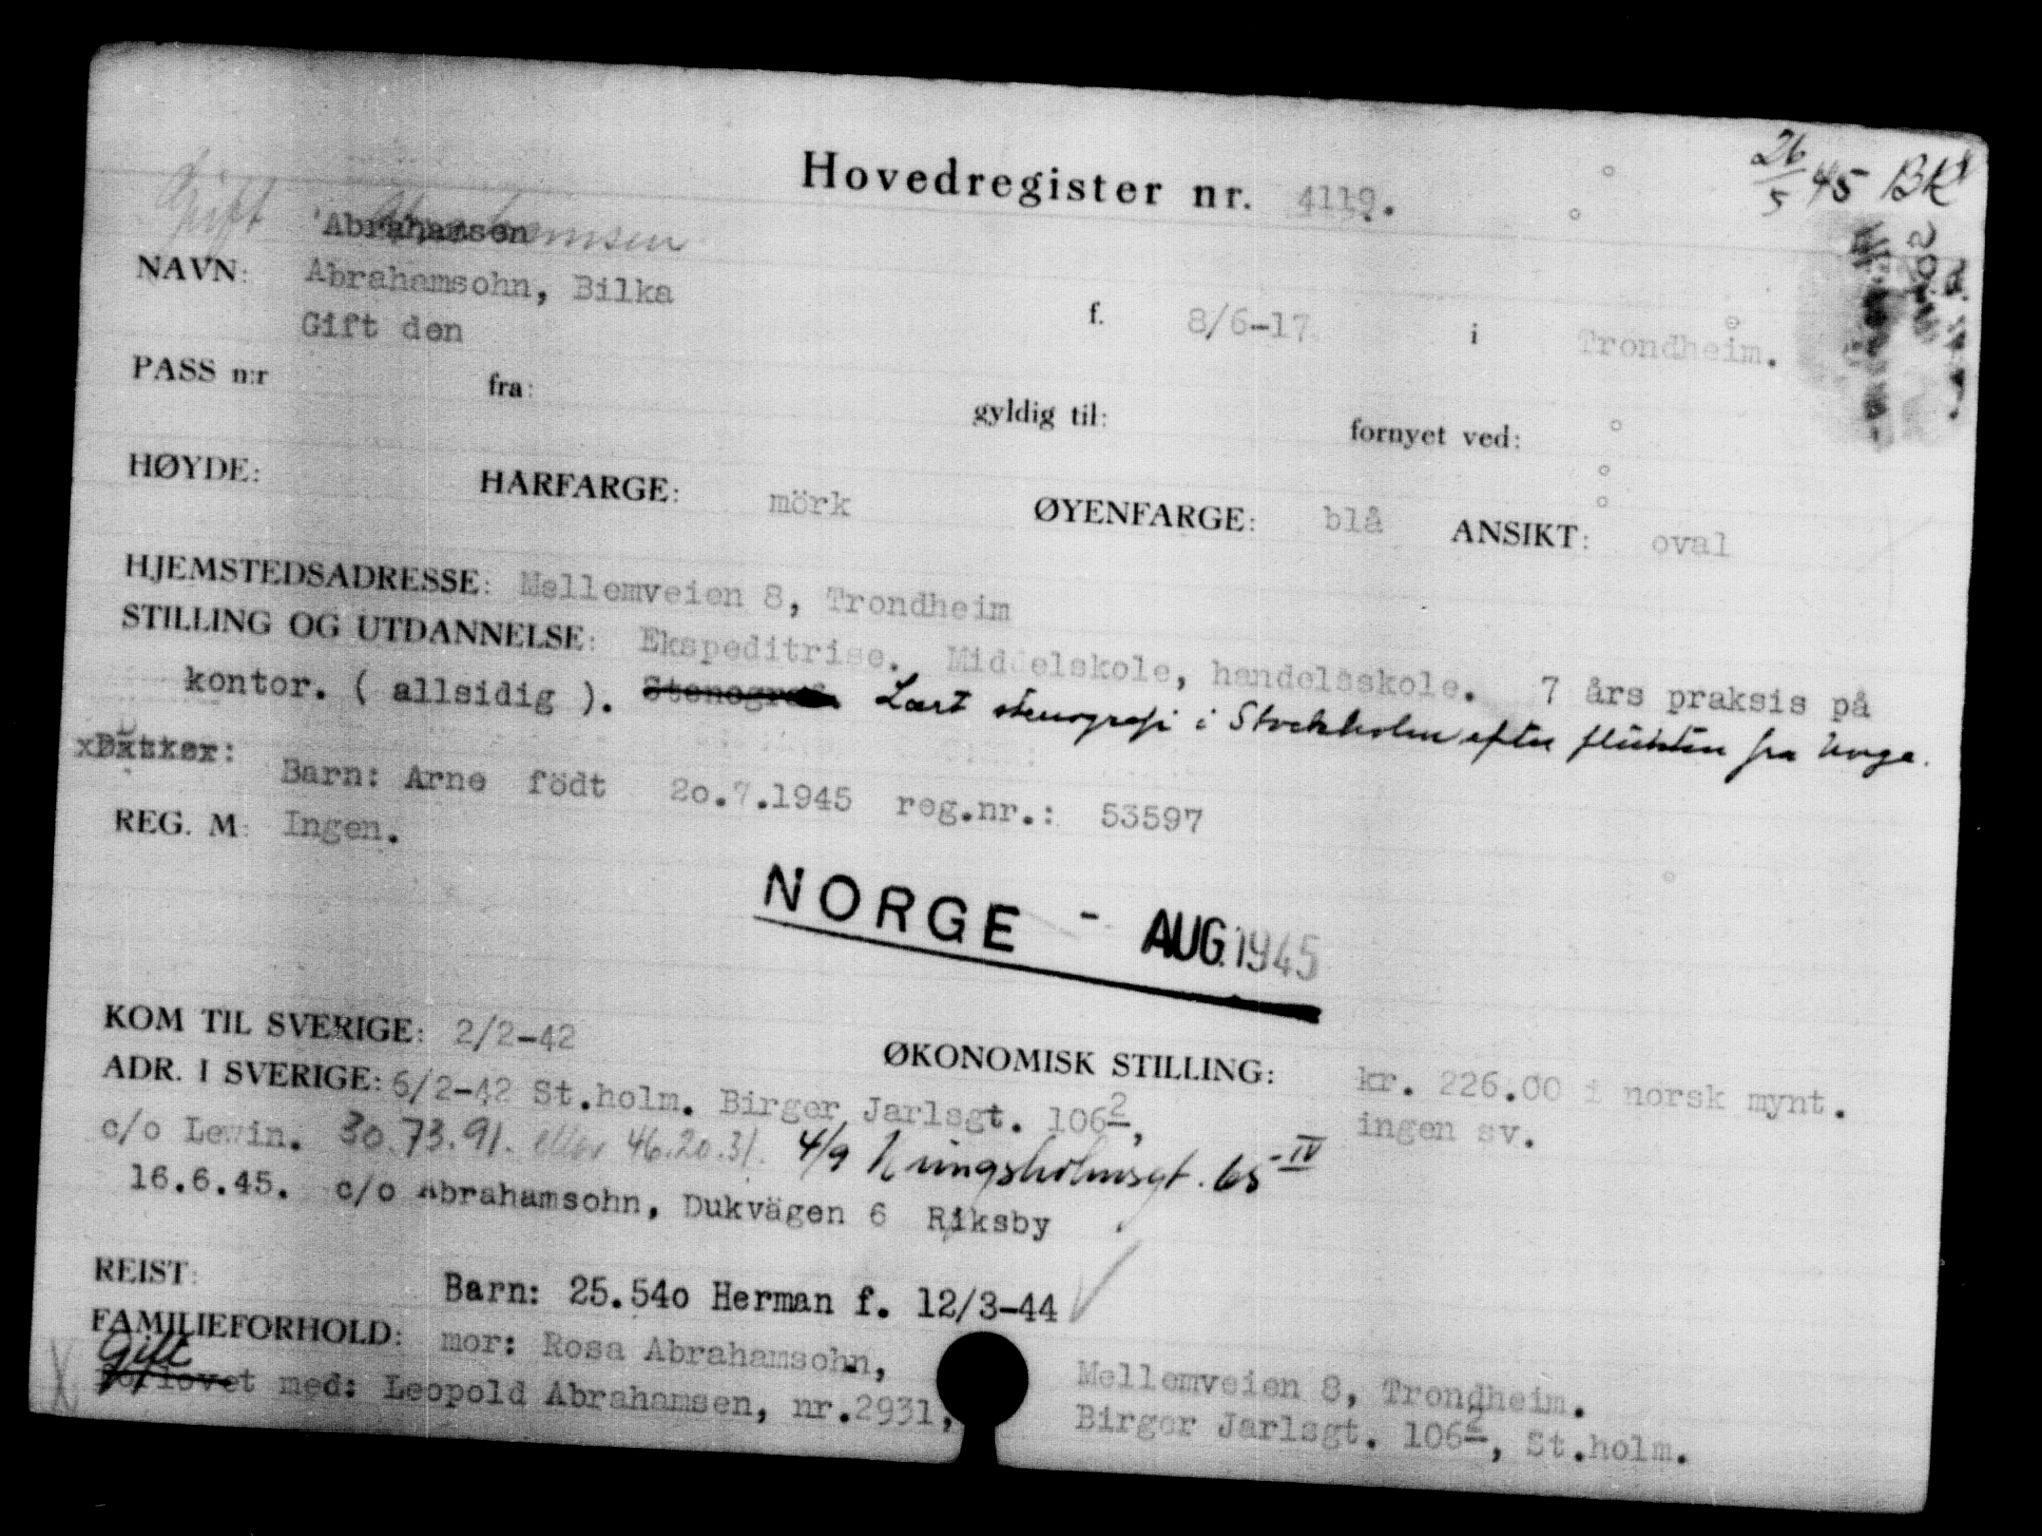 26/5 45 BK
Hovedregister nr. 4119.
Gift Abrahamsen
'Abrahamsen
NAVN: Abrahamsohn, Bilka f. 8/6-17. i Trondheim.
Gift den
PASS n:r fra: gyldig til: fornyet ved:
HØYDE: HARFARGE: mörk ØYENFARGE: blå ANSIKT: oval
HJEMSTEDSADRESSE: Mellemveien 8, Trondheim
STILLING OG UTDANNELSE: Ekspeditrise. Middelskole, handelsskole. 7 års praksis på
kontor. ( allsidig ). Stenograf Lært stenografi i Stockholm efter flukten fra Norge.
Barn: Arne födt 2o.7.1945 reg.nr.: 53597
REG. M: Ingen.
NORGE - AUG. 1945
KOM TIL SVERIGE: 2/2-42 ØKONOMISK STILLING: kr. 226.00 i norsk mynt.
ingen sv.
ADR. I SVERIGE: 6/2-42 St.holm. Birger Jarlsgt. 106 2,
c/o Lewin. 30.73.91. eller 46.20.31. 4/9 Kungsholmsgt. 65 - IV
16.6.45. c/o Abrahamsohn, Dukvägen 6 Riksby
REIST:
Barn: 25.54o Herman f. 12/3-44
FAMILIEFORHOLD: mor: Rosa Abrahamsohn, Mellemveien 8, Trondheim.
Gift
Forlovet med: Leopold Abrahamsen, nr.2931, Birger Jarlsgt. 106 2, St.holm.